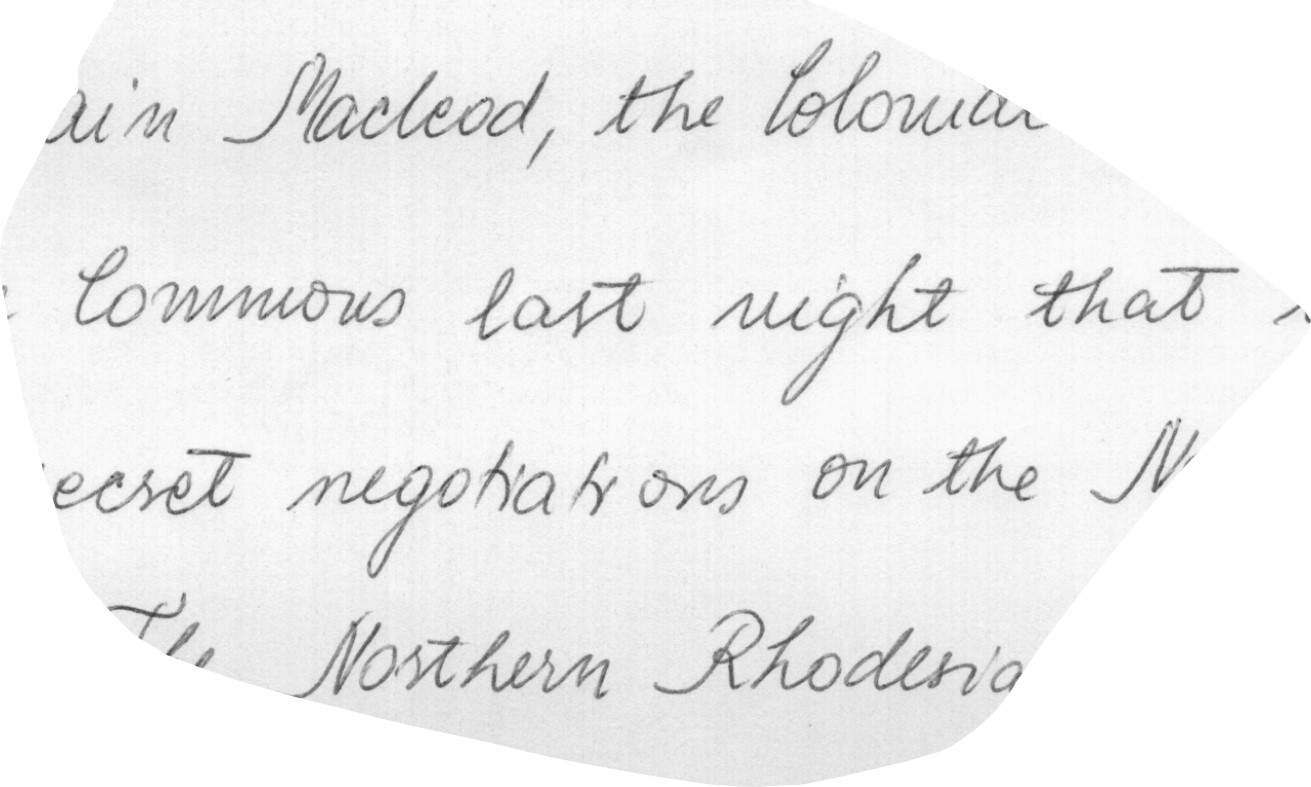 ain Macleod, the Colonial
Commons last night that
ecret negotiations on the N
The Northern Rhodesia